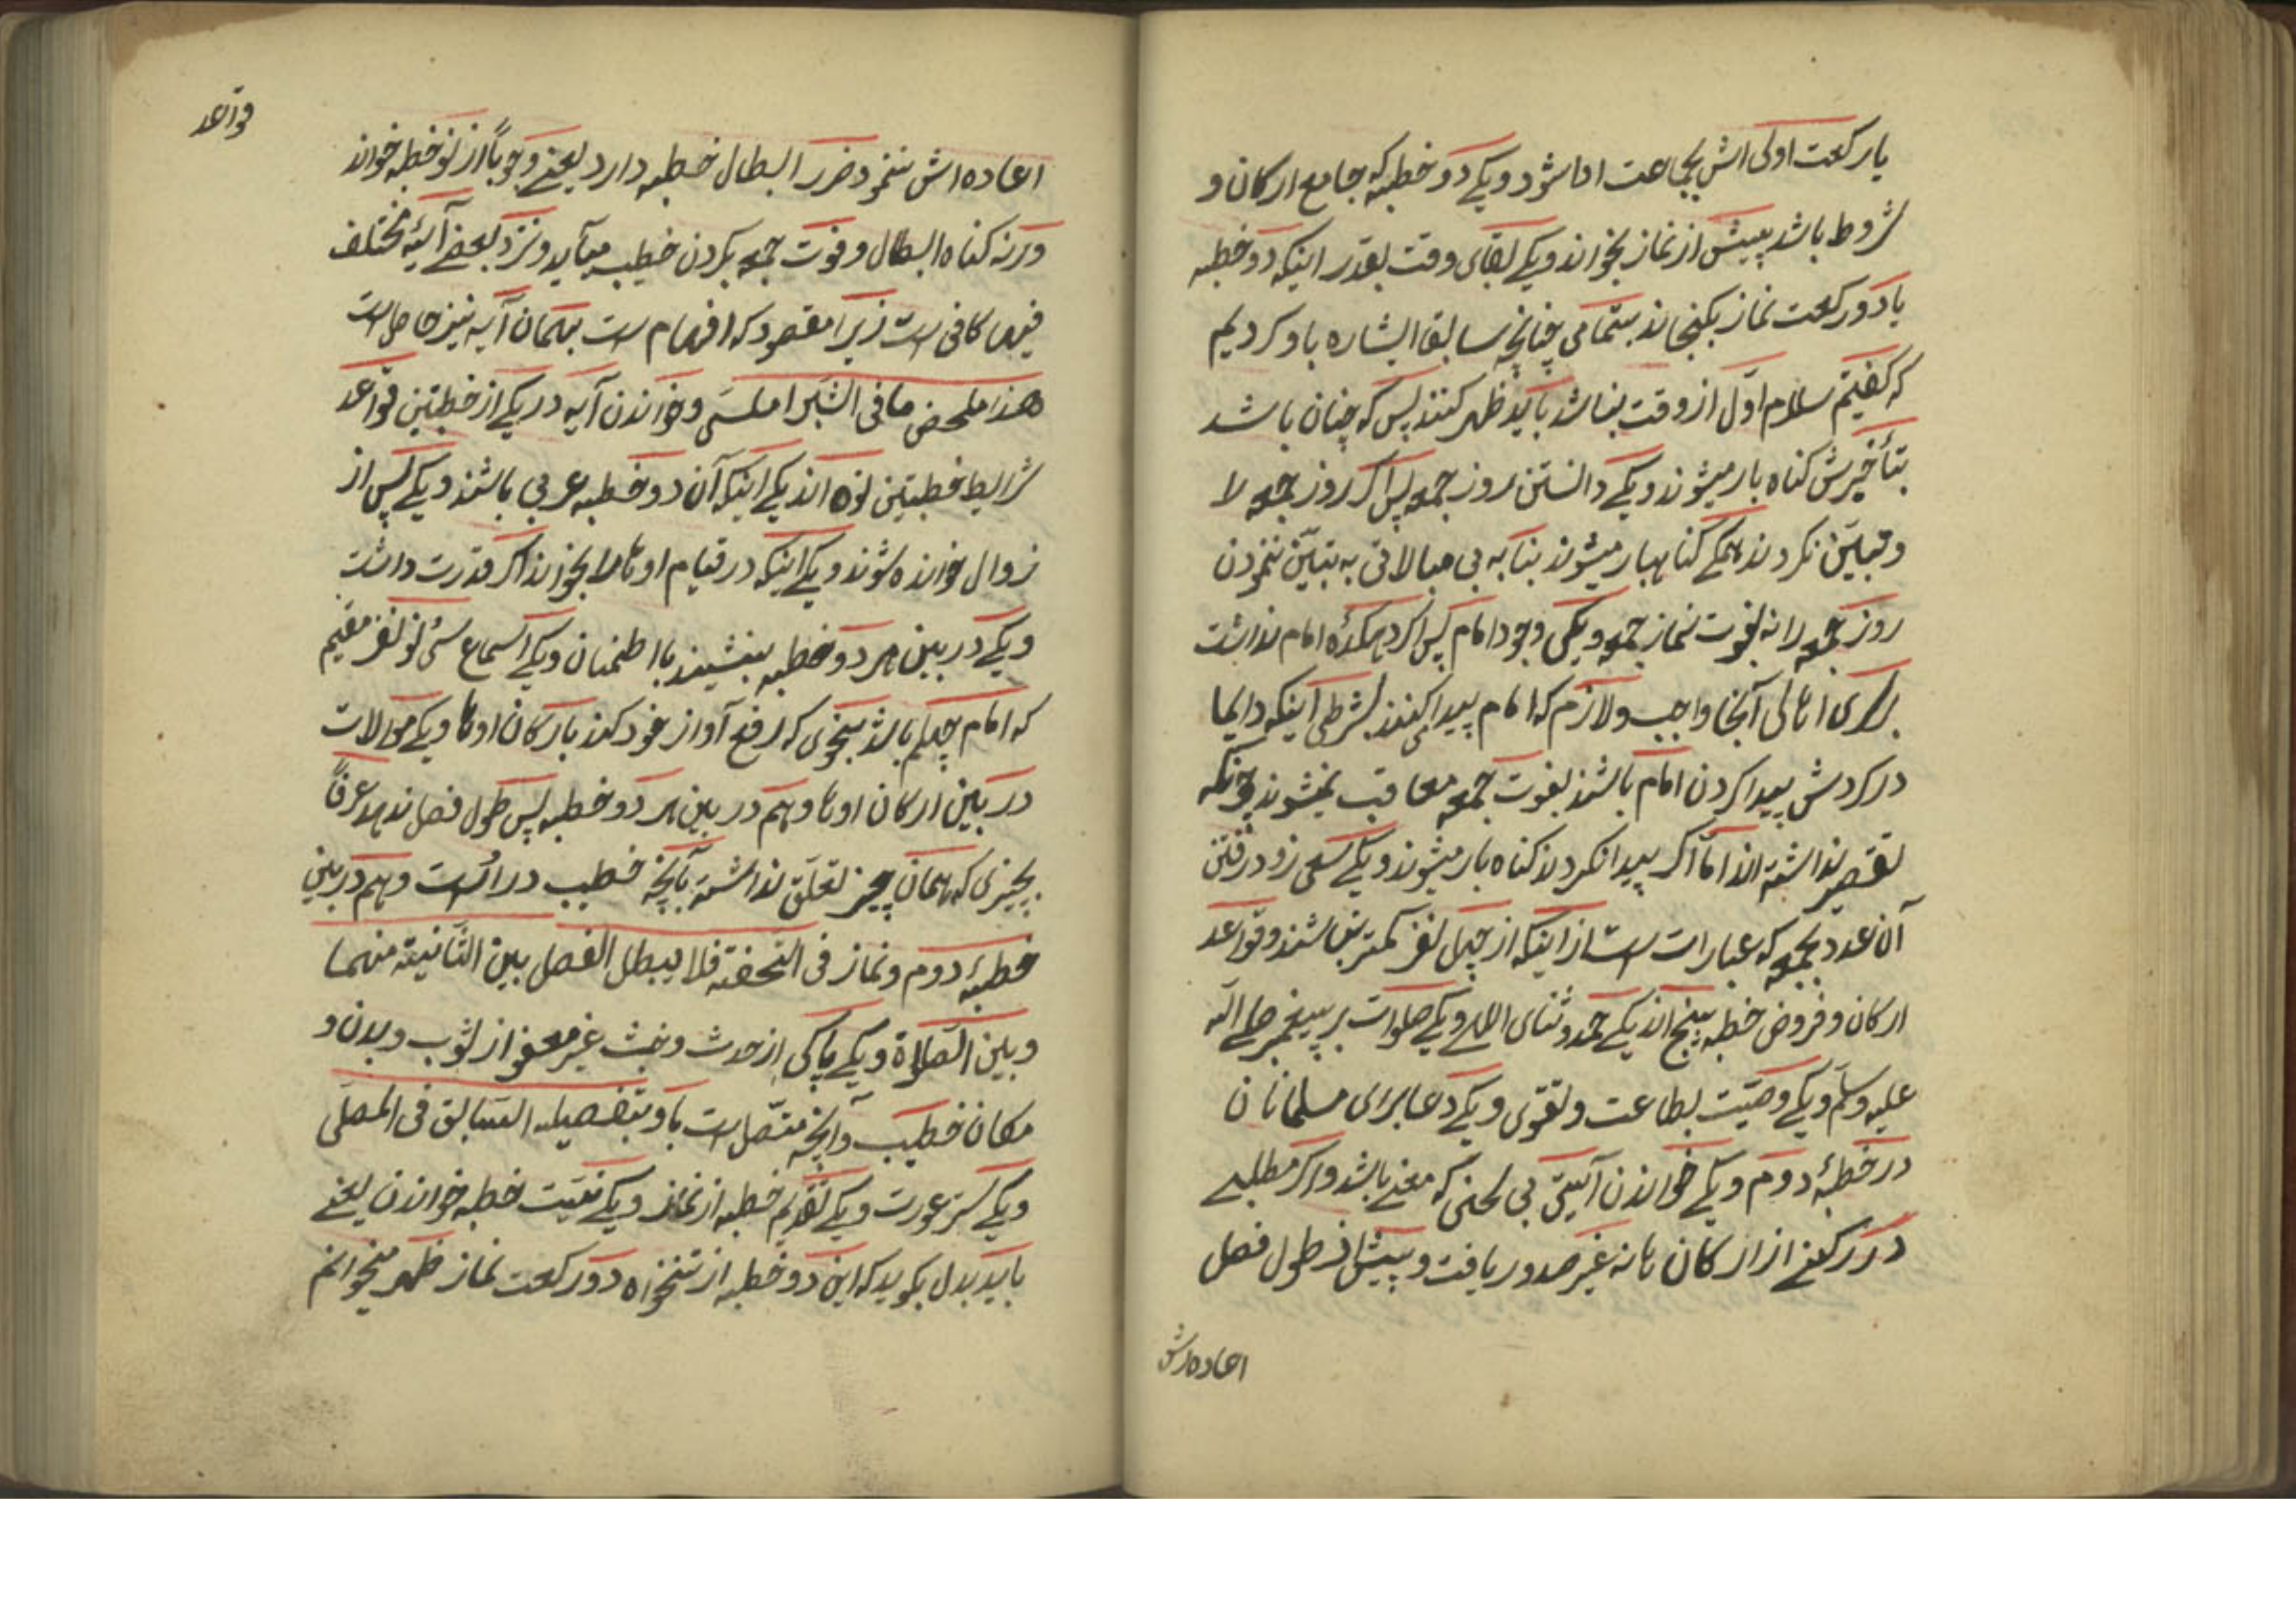 یا رکعت اولی اش بجماعت ادا شود و یکے دو خطبه که جامع ارکان و
شروط باشد پیش از نماز بخواند و یکے بقای وقت بقدر اینکه دو خطبه
با دو رکعت نماز بکنجاند بتمامی چنانچه سابق اشاره باو کردیم
که کفتیم سلام اوّل از وقت نباشد باید ظهر کنند پس که چنان باشد
بتأخیرش کناه بار میشوند و یکے دانستن روز جمعه پس اکر روز جمعه لا
و تبایّن نکردند همکے کناهبار میشوند بنا به بی مبالاتی به تبیّن ننمودن
روز جمعه را نه بفوت نماز جمعه و یکی وجود امام پس اکر دهکدۀ امام نداشت
برای اهالی آنجا واجب و لازم که امام پیدا کنند بشرطی اینکه دایما
در کردش پیدا کردن امام باشند بفوت جمعه معاقب نمیشوند چونکه
تقصیر نداشته اند امّا اکر پیدا نکردند کناه بار میشوند و یکے سعی زود رفتن
آن عدد بجمعه که عبارات است از اینکه از چهل نفر کمتر نباشند و قواعد
ارکان و فروض خطبه پنج اند یکے حمد و ثنای اللہ و یکے صلوات بر پیغمبر صلے اللّه
علیه وسلّم و یکے وصیّت بطاعت و تقوی و یکے دعا برای مسلمانان
در خطبۀ دوم و یکے خواندن آیتی بی لحنی که معنے باشد و اکر مطلبے
در رکنے از ارکان نا نه غیر صدور یافت و پیش از طول فصل
اعاده اش
قواعد
اعاده اش ننمود ضرر ابطال خطبه دارد یعنے وجوباً از نو خطبه خواند
ورنه کناه ابطال و فوت جمعه بکردن خطیب میآید و نزد بعضے آئیۀ مختلف
فیها کافی است زیرا مقصود که افهام است بهمان آیه نیز حاصل است
هذا ملخص ما فی الشبراملسی و خواندن آیه در یکے از خطبتین قواعد
شرایط خطبتین نُه اند یکے اینکه آن دو خطبه عربی باشند و یکے پس از
زوال خوانده شوند و یکے اینکه در قیام اوها را بخواند اکر قدرت داشت
و یکے در بین هر دو خطبه بنشیند با اطمنان و یکے اسماع سی نو نفر مقیم
که امام چهلم باشد بنحوی که رفع آواز خود کند بارکان اوها و یکے موالات
در بین ارکان اوها و هم در بین هر دو خطبه پس طول فصل ندهد عرفاً
بچیزی که همان چیز تعلّق نداشته بآنچه خطیب در اوست و هم در بین
خطبۀ دوم و نماز فی التحفة فلا یبطل الفصل بین الثّانیة منهما
و بین الصّلاة و یکے پاکی از حدث و خبث غیر معفو از ثوب و بدن و
مکان خطیب و آنچه متّصل است باو بتفصیله السّابق فی المصلّی
و یکے ستر عورت و یکے تقدیم خطبه از نماز و یکے نیّت خطبه خواندن یعنے
باید بدل بکوید که این دو خطبه از تنخواه دو رکعت نماز ظهر میخوانم